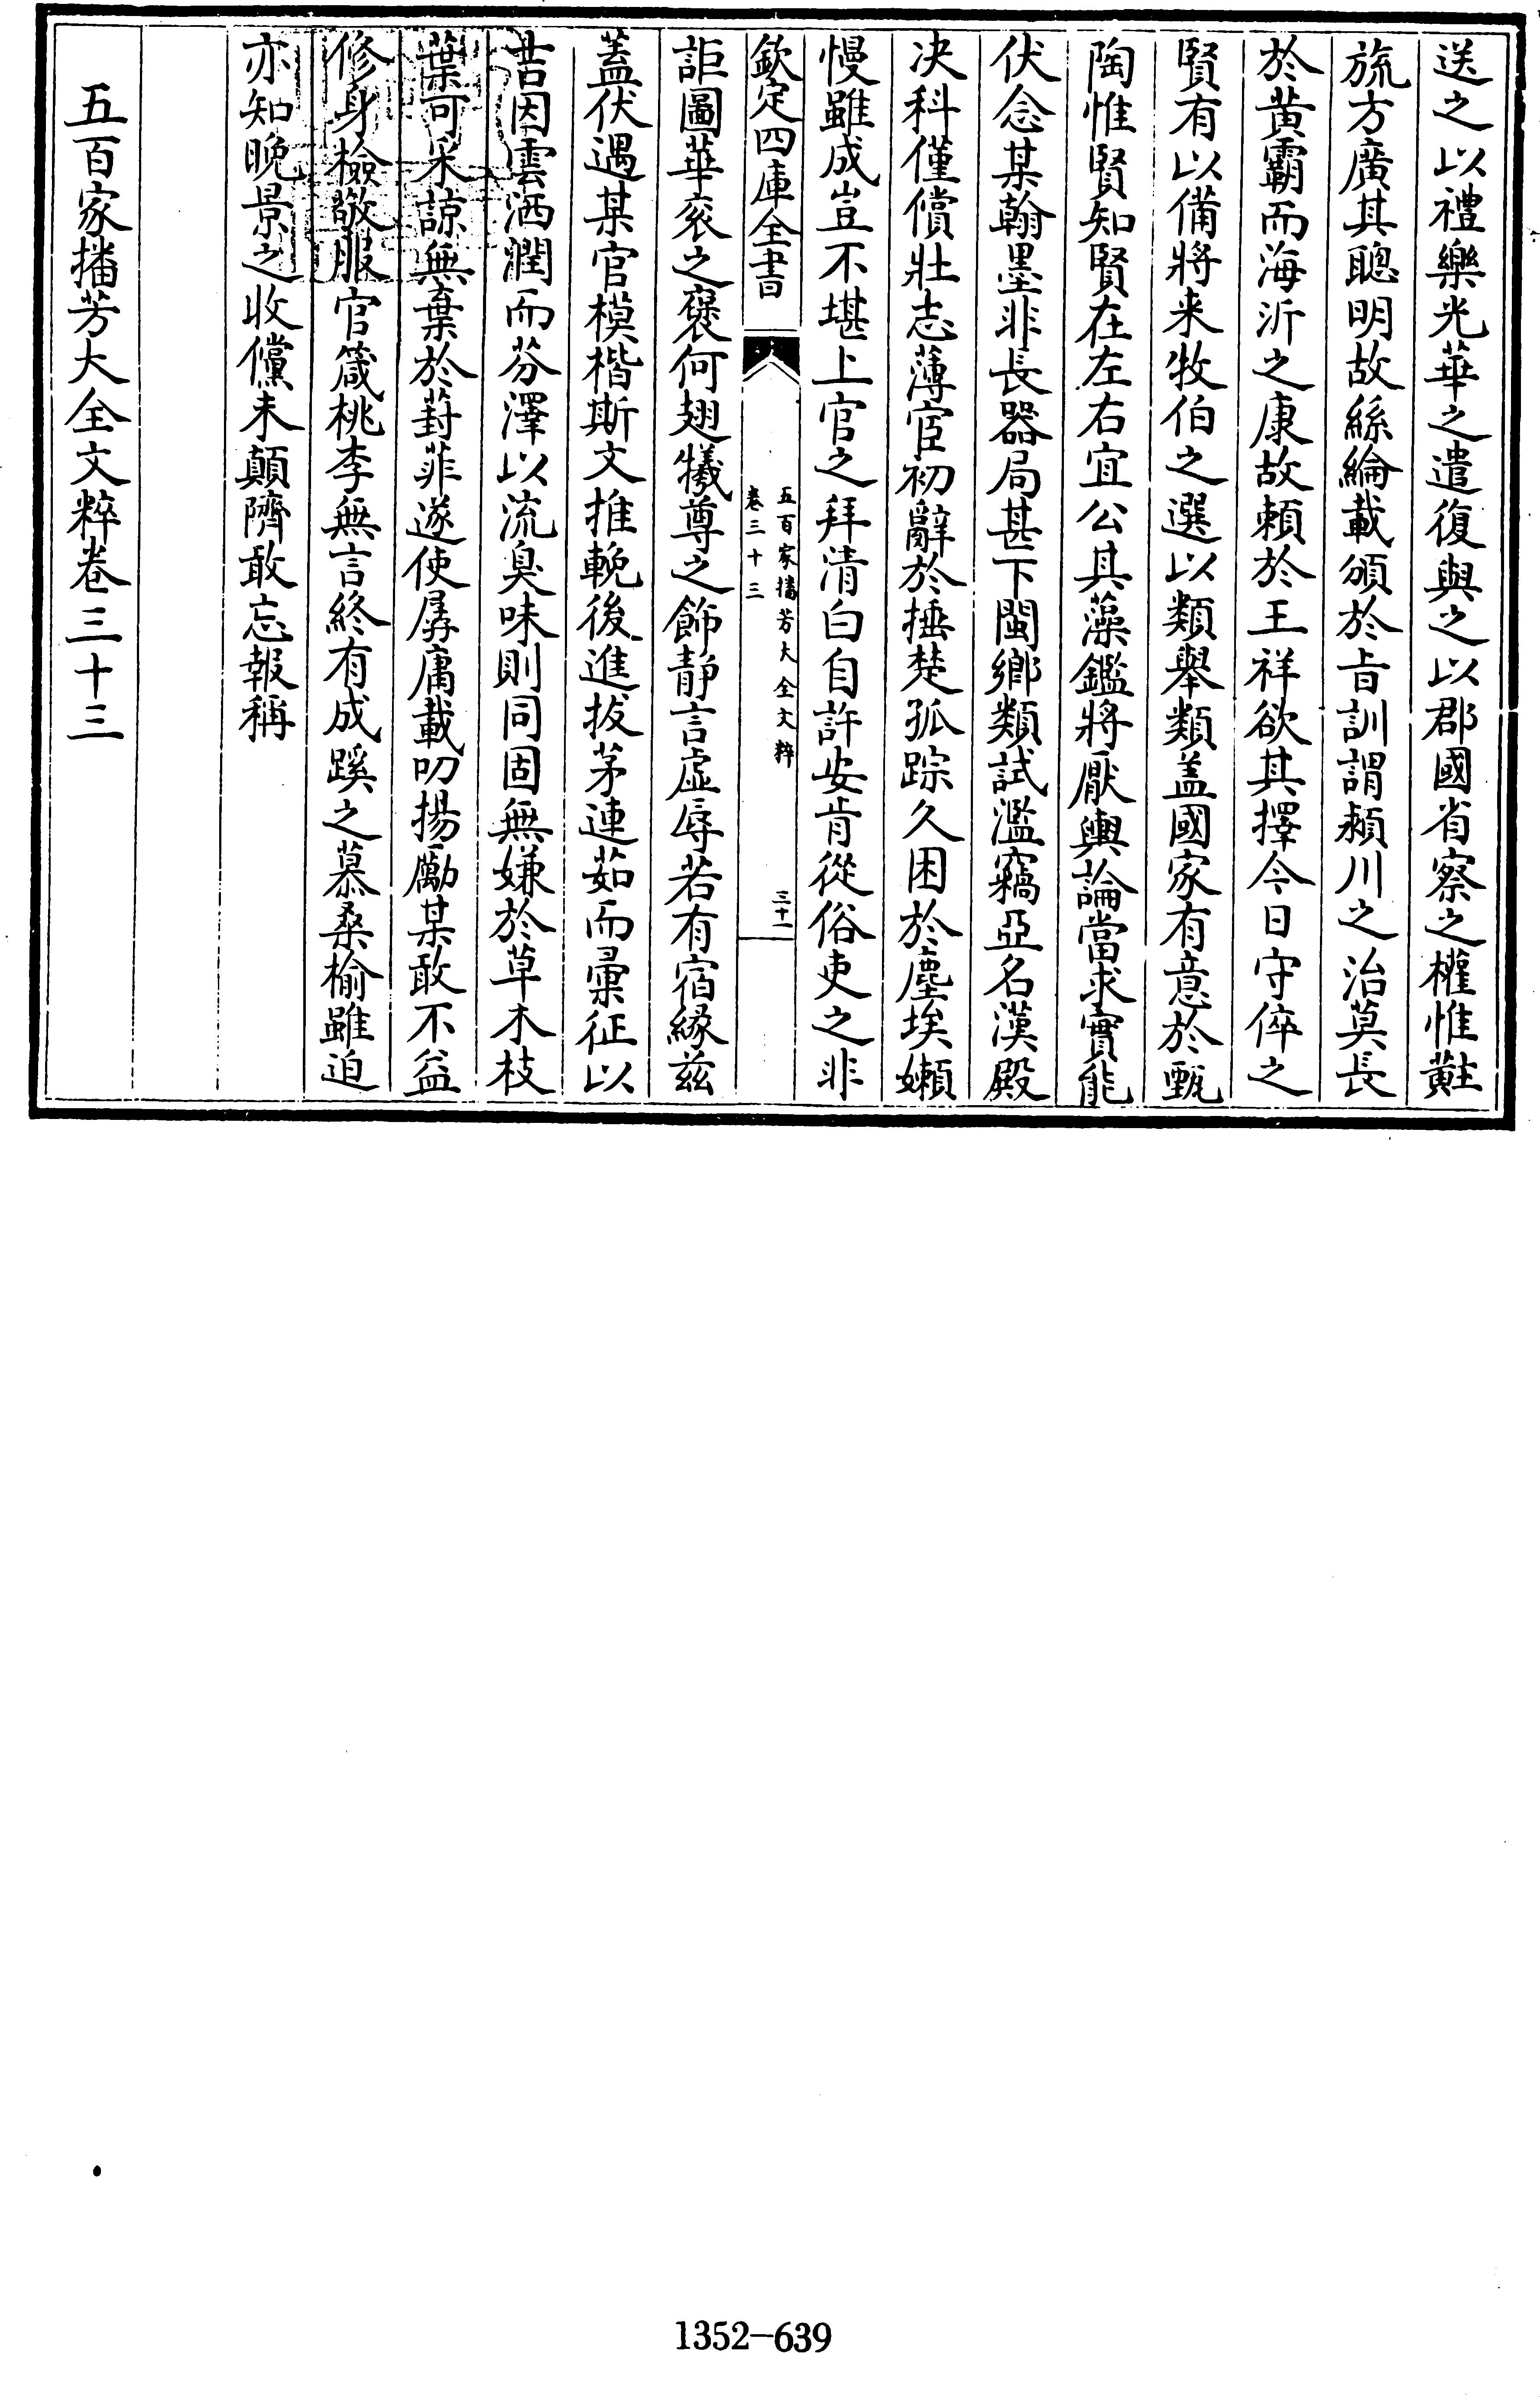 送之以禮樂光華之遣復與之以郡國省察之權惟黈
旒方廣其聰明故絲綸載頒於㫖訓謂潁川之治莫長
於黄霸而海沂之康故賴於王祥欲其擇今日守倅之
賢有以備將来牧伯之選以類舉類盖國家有意於甄
陶惟賢知賢在左右宜公其藻鑑將厭輿論當求實能
伏念某翰墨非長器局甚下閩鄉類試濫竊亞名漢殿
决科僅償壯志薄宦初辭於捶楚孤踪久困於塵埃嬾
慢雖成豈不堪上官之拜清白自許安肯從俗吏之非
欽定四庫全書
五百家播芳大全文粹
卷三十三
三十一
詎圖華衮之襃何翅犧尊之飾靜言虚辱若有宿緣兹
蓋伏遇某官模楷斯文推輓後進拔茅連茹而彚征以
苔因雲洒潤而芬澤以流臭味則同固無嫌於草木枝
葉可采諒無棄於葑菲遂使孱庸載叨揚勵某敢不益
修身檢敬服官箴桃李無言終有成蹊之慕桑榆雖迫
亦知晚景之收儻未顛隮敢忘報稱
五百家播芳大全文粹卷三十三
1352-639